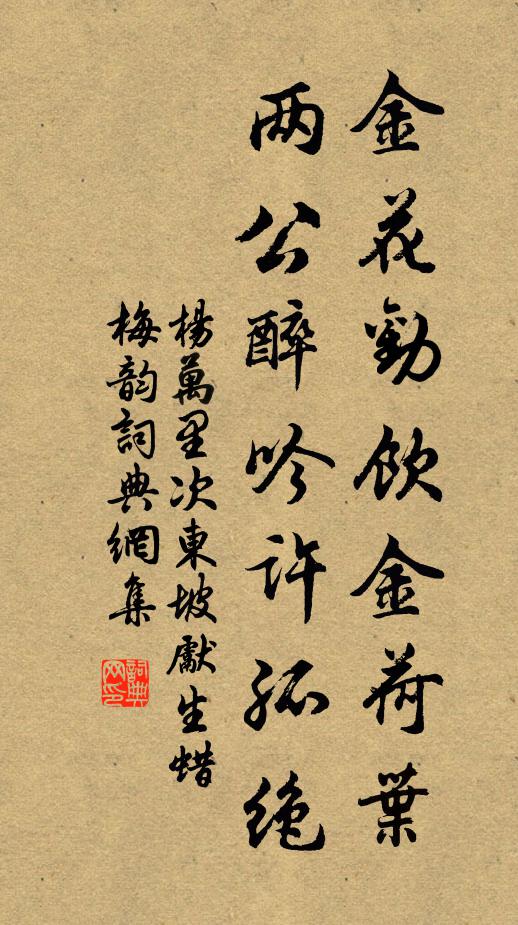 金花勸飲金荷葉
两公醉吟許孤絶
楊萬里次東坡獻生蜡
梅韵詞典網集
詞典网印